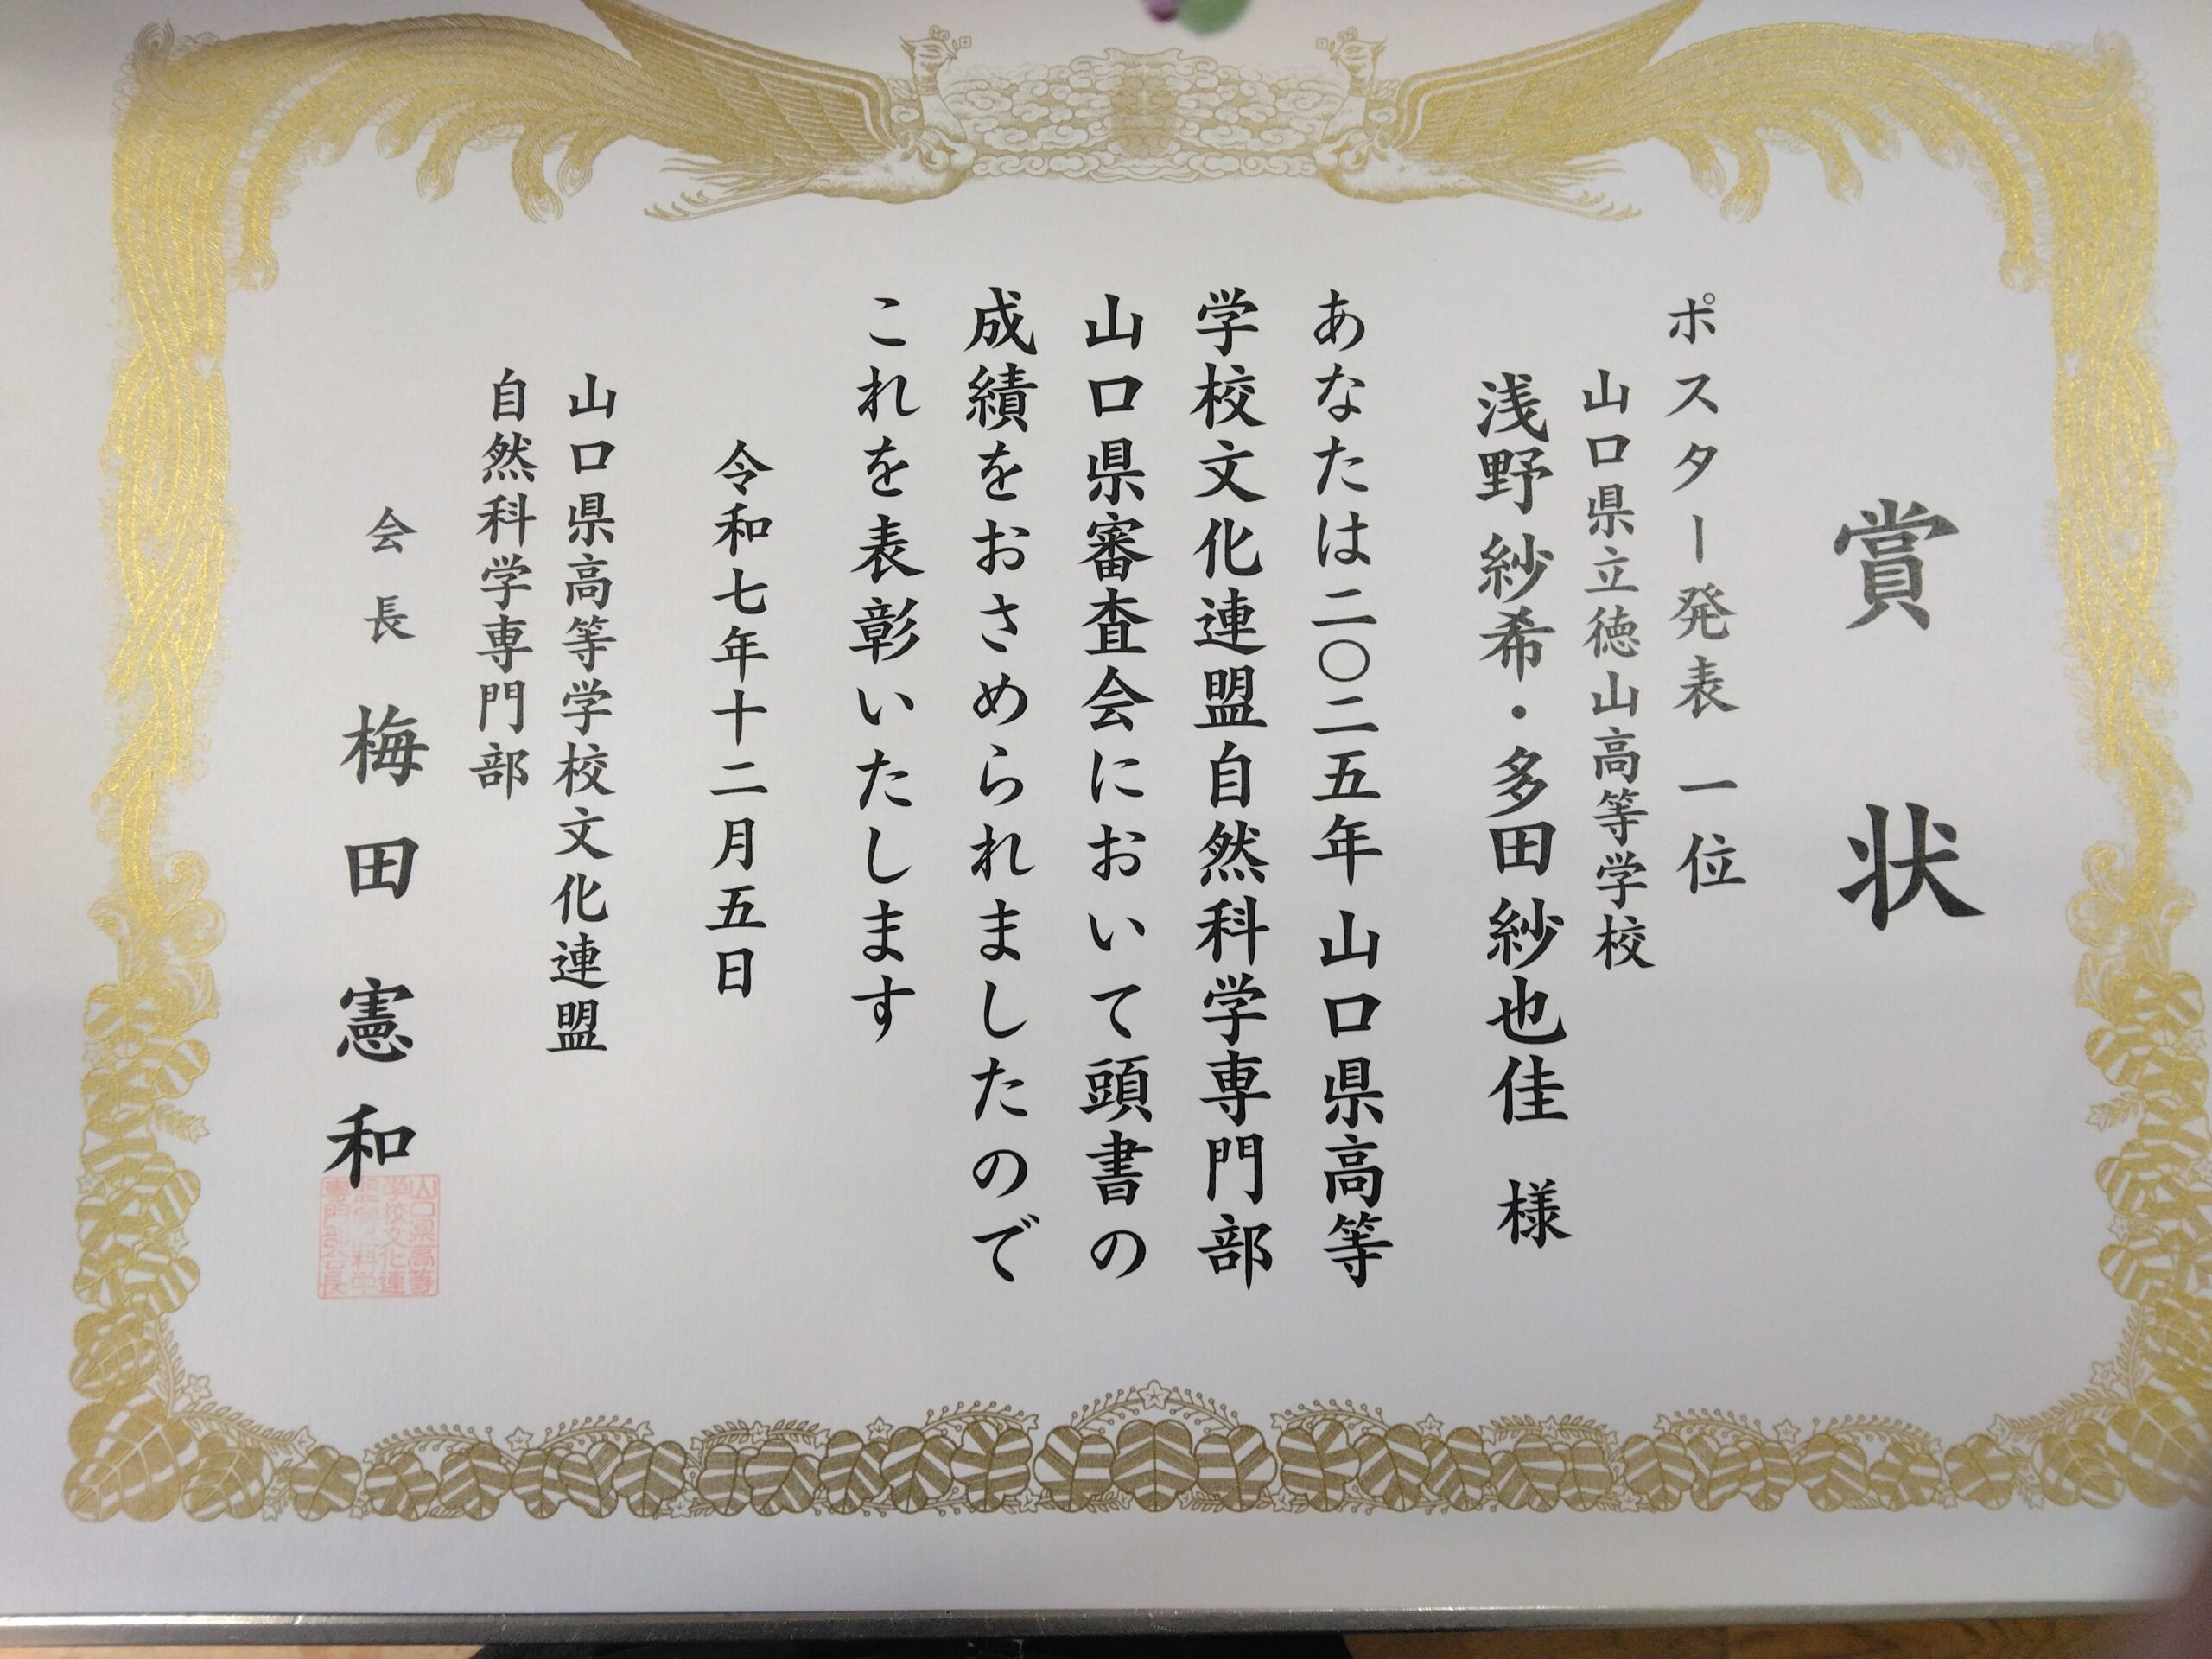 賞状
ポスター発表 一位
山口県立徳山高等学校
浅野紗希・多田紗也佳 様
あなたは二〇二五年山口県高等
学校文化連盟自然科学専門部
山口県審査会において頭書の
成績をおさめられましたので
これを表彰いたします
令和七年十二月五日
山口県高等学校文化連盟
自然科学専門部
会長 梅田憲和
山口県高等
学校文化連
科学
専門部会長